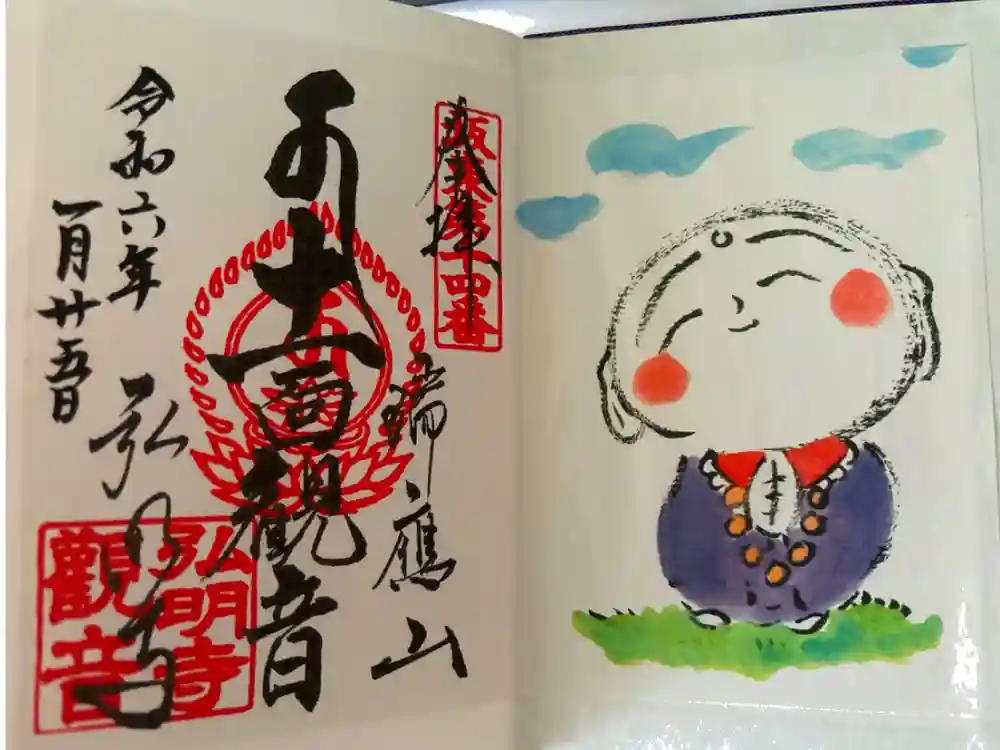 奉拝
坂東第十四番
瑞應山
十一面観音
弘明寺
弘明寺
觀音
令和六年
一月廿五日